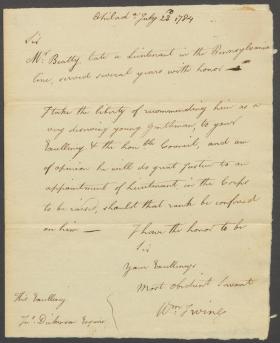 Philad.ª July 22ᵈ 1784
Sir
Mr. Beatty late a Lieutenant in the Pennsylvania
line, served several years with honor —
I take the liberty of recommending him as a
very deserving young gentleman, to your
Excellency & the honble Council, and am
of opinion he will do great justice to an
appointment of Lieutenant in the Corps
to be raised, should that rank be conferred
on him —
I have the honor to be
Sir
Your Excellencys
Most obedient Servant
Wm. Irvine
His Excellency
Jno. Dickinson Esquire